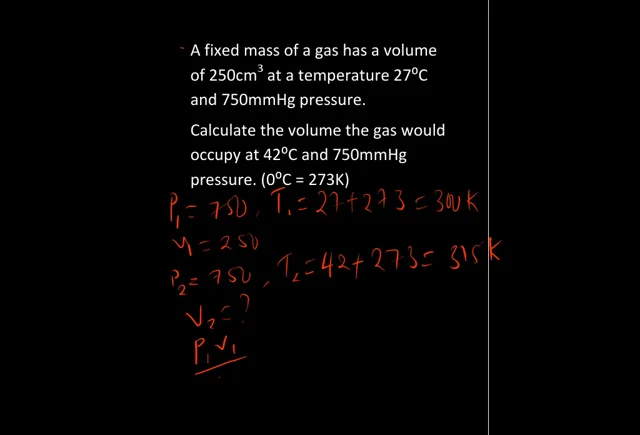 A fixed mass of a gas has a volume
of 250cm³ at a temperature 27⁰C
and 750mmHg pressure.
Calculate the volume the gas would
occupy at 42⁰C and 750mmHg
pressure. (0⁰C = 273K)
P₁ = 750, T₁ = 27 + 273 = 300K
V₁ = 250
P₂ = 750, T₂ = 42 + 273 = 315K
V₂ = ?
P₁V₁